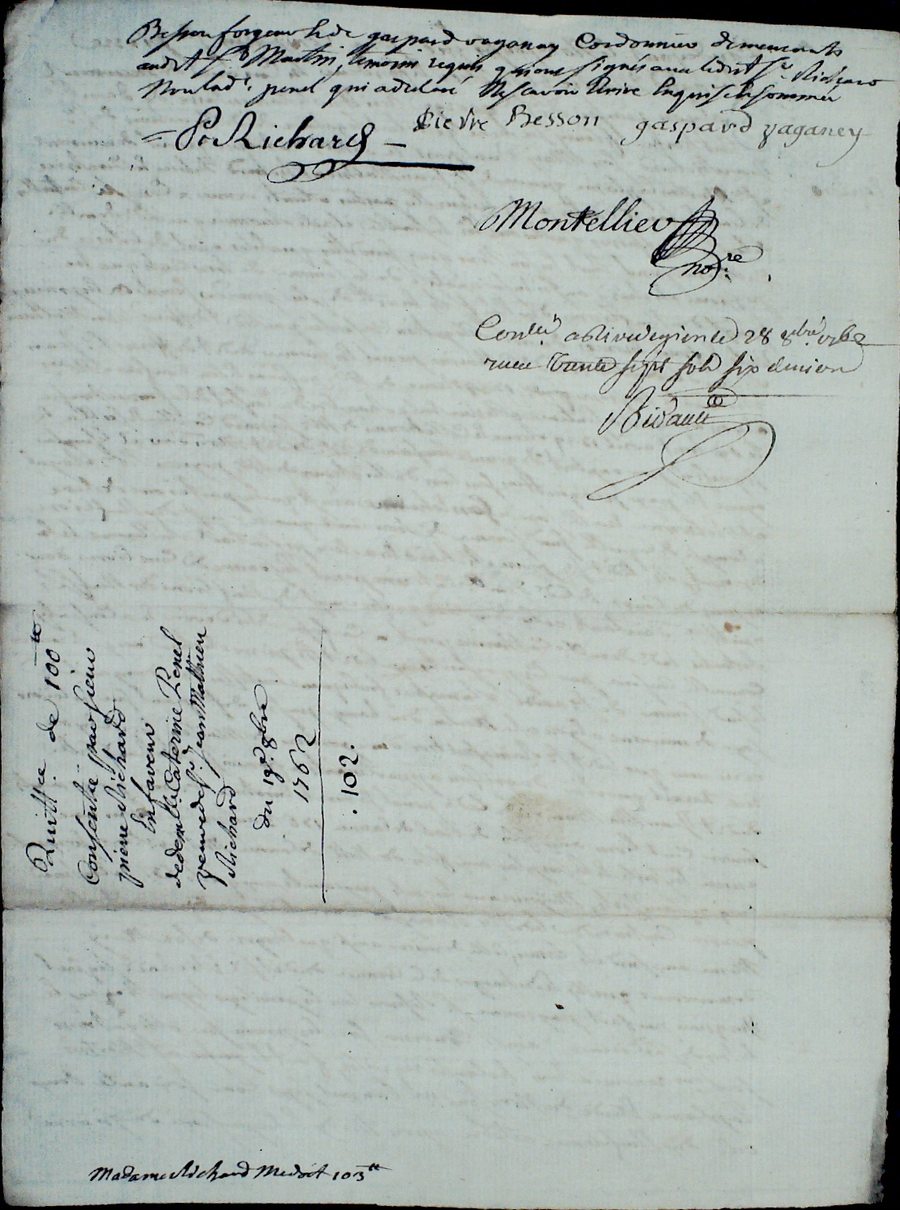 Besson forgeur & de gaspard vaganay Cordonnier demeurants
audit St Martin, temoins requis qui ont signés avec ledit Sr Richard
Non lade penel qui a declaré Ne Scavoir Ecrire Enquise & Sommée
P. Richard
Pierre Besson
gaspard vaganey
Montellier
nore
Conllé a St 28 8bre 1762
recu trente sept sols six deniers
Bidault
Quittce de 100 tt
Consentie par sieur
pierre Richard
En faveur
de demlle Caterine Penel
veuve de Sr Jean Mathieu
Richard
du 19e 8bre
1762
102.
Madame Richard Me doit 103 tt